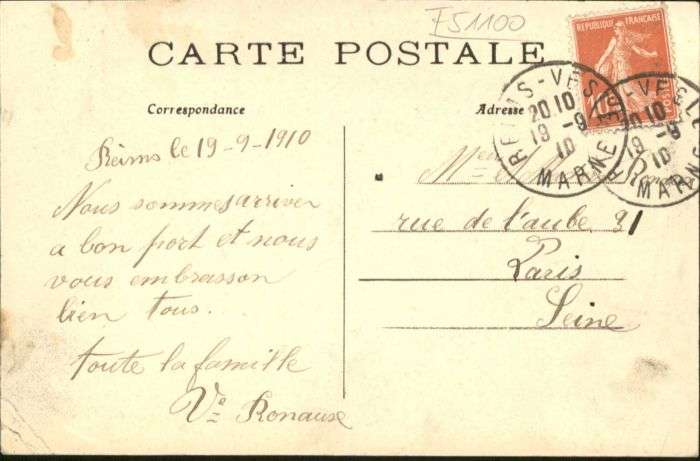 F51100
CARTE POSTALE
Correspondance
Adresse
REPUBLIQUE FRANÇAISE
10
POSTES
REIMS-VESLE
20 10
19 -9
10
MARNE
REIMS-VESLE
20 10
19 -9
10
MARNE
Reims le 19-9-1910
Nous sommes arriver
a bon port et nous
vous embrasson
bien tous.
toute la famille
Ve Ronause
rue de l'aube 21
Paris
Seine